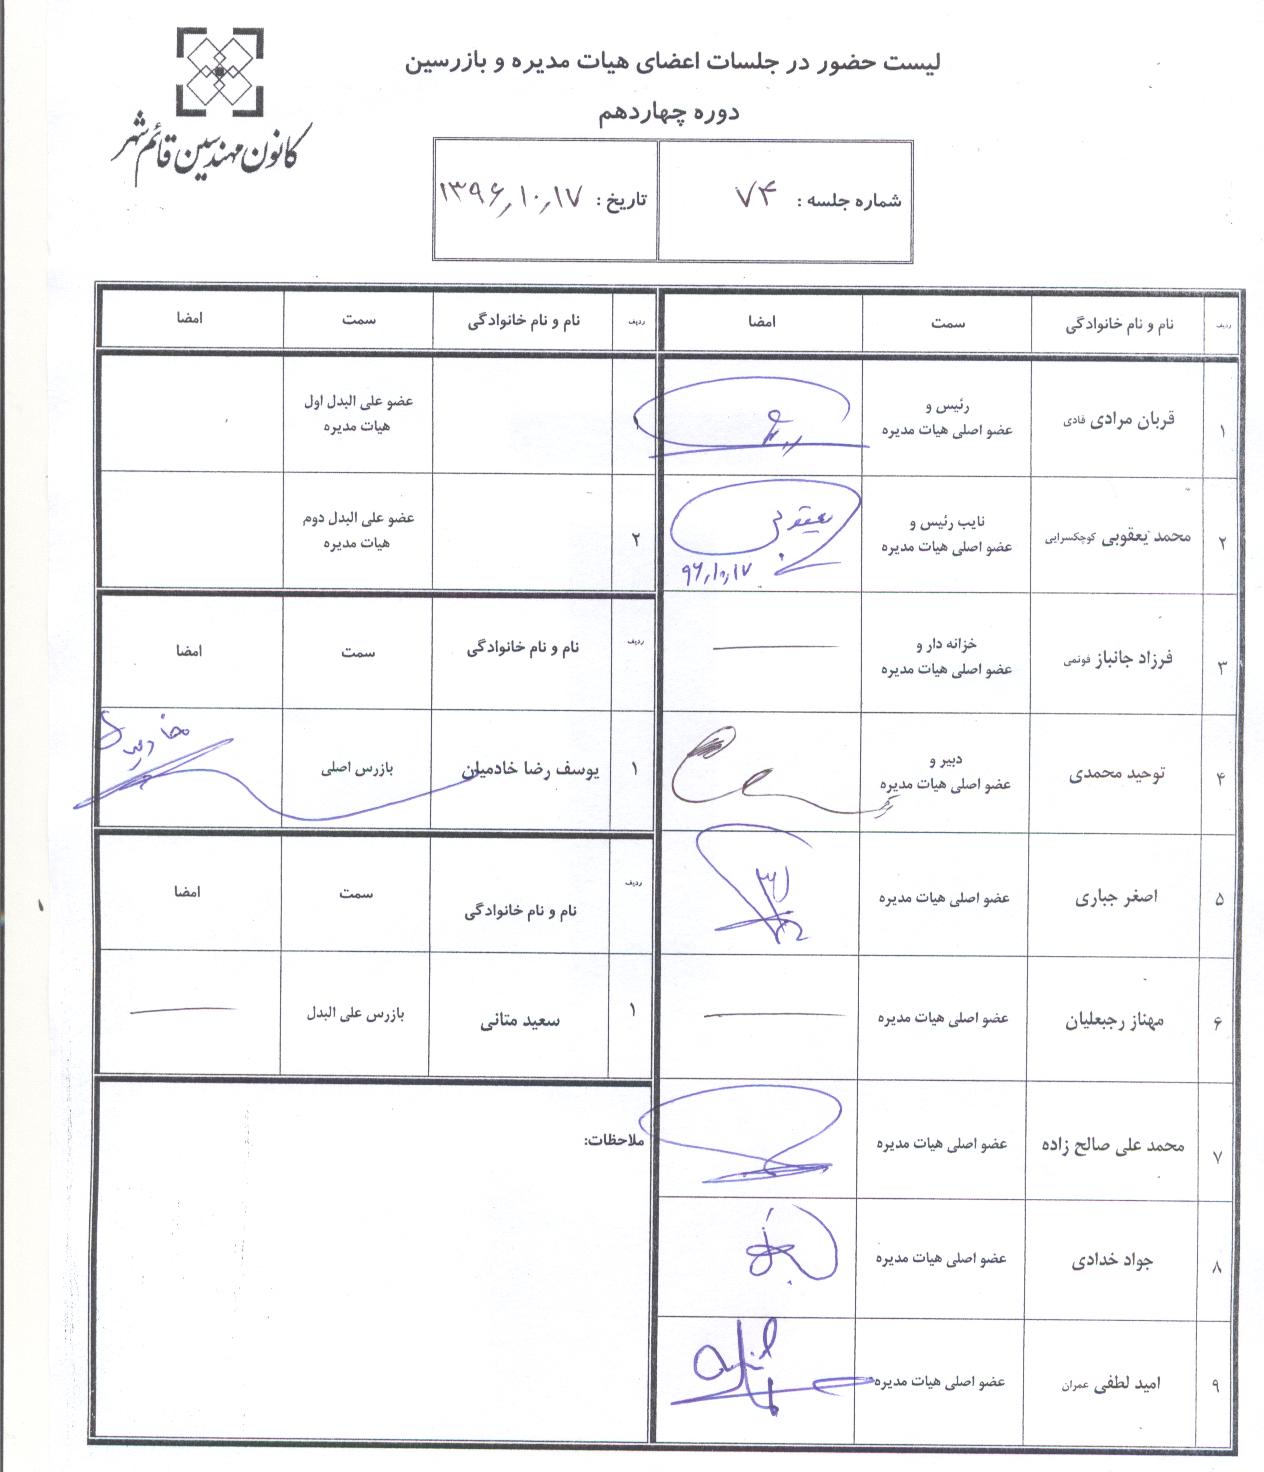 کانون مهندسین قائم شهر
لیست حضور در جلسات اعضای هیات مدیره و بازرسین
دوره چهاردهم
شماره جلسه : ۷۴
تاریخ : ۱۳۹۶,۱۰,۱۷
ردیف نام و نام خانوادگی سمت امضا
۱ قربان مرادی قادی رئیس و
عضو اصلی هیات مدیره
۲ محمد یعقوبی کوچکسرایی نایب رئیس و
عضو اصلی هیات مدیره
یعقوبی
۹۶,۱۰,۱۷
۳ فرزاد جانباز فوتمی خزانه دار و
عضو اصلی هیات مدیره
۴ توحید محمدی دبیر و
عضو اصلی هیات مدیره
۵ اصغر جباری عضو اصلی هیات مدیره
۶ مهناز رجبعلیان عضو اصلی هیات مدیره
۷ محمد علی صالح زاده عضو اصلی هیات مدیره
۸ جواد خدادی عضو اصلی هیات مدیره
۹ امید لطفی عمران عضو اصلی هیات مدیره
ردیف نام و نام خانوادگی سمت امضا
۱ عضو علی البدل اول
هیات مدیره
۲ عضو علی البدل دوم
هیات مدیره
ردیف نام و نام خانوادگی سمت امضا
۱ یوسف رضا خادمیان بازرس اصلی
ردیف نام و نام خانوادگی سمت امضا
۱ سعید متانی بازرس علی البدل
ملاحظات: